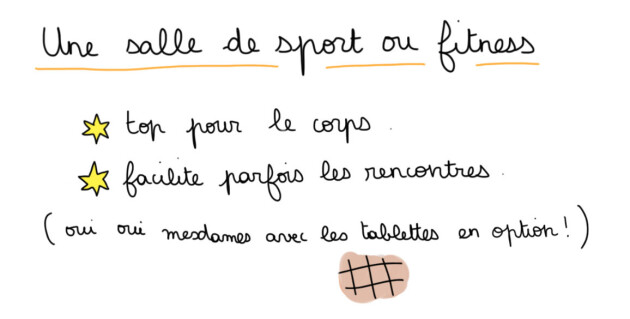 Une salle de sport ou fitness
top pour le corps.
facilite parfois les rencontres.
(oui oui mesdames avec les tablettes en option!)